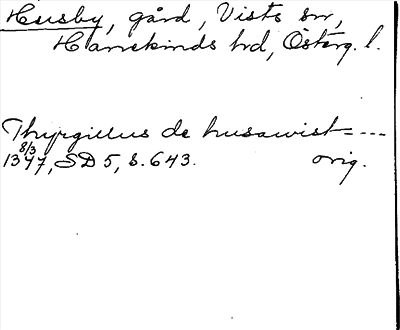 Husby, gård, Vists sn,
Hanekinds hd, Österg. l.
Thyrgillus de husawist - - -
8/3
1347, SD 5, s. 643. orig.